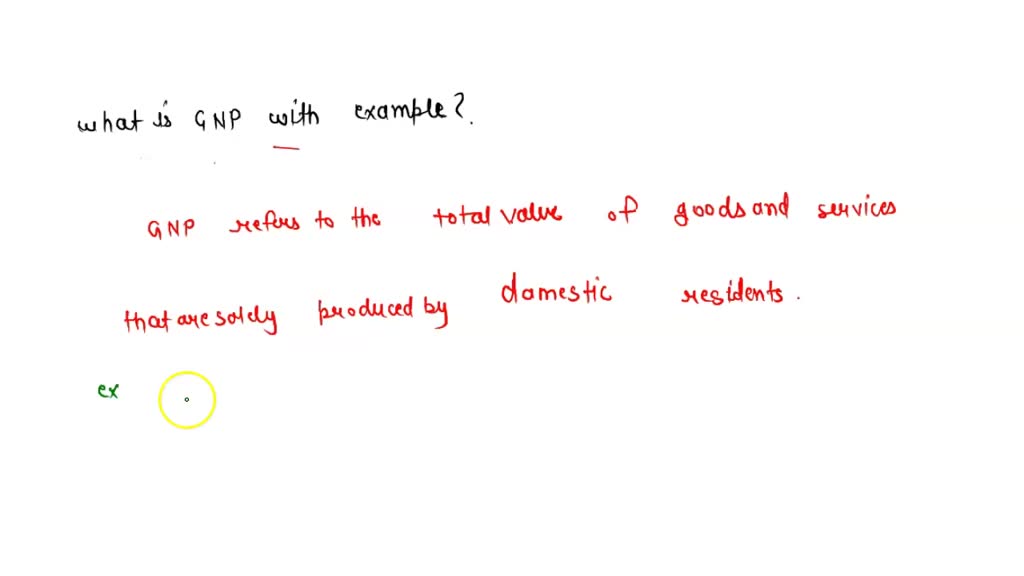 what is GNP with example?
GNP refers to the total value of goods and services
that are solely produced by domestic residents.
ex